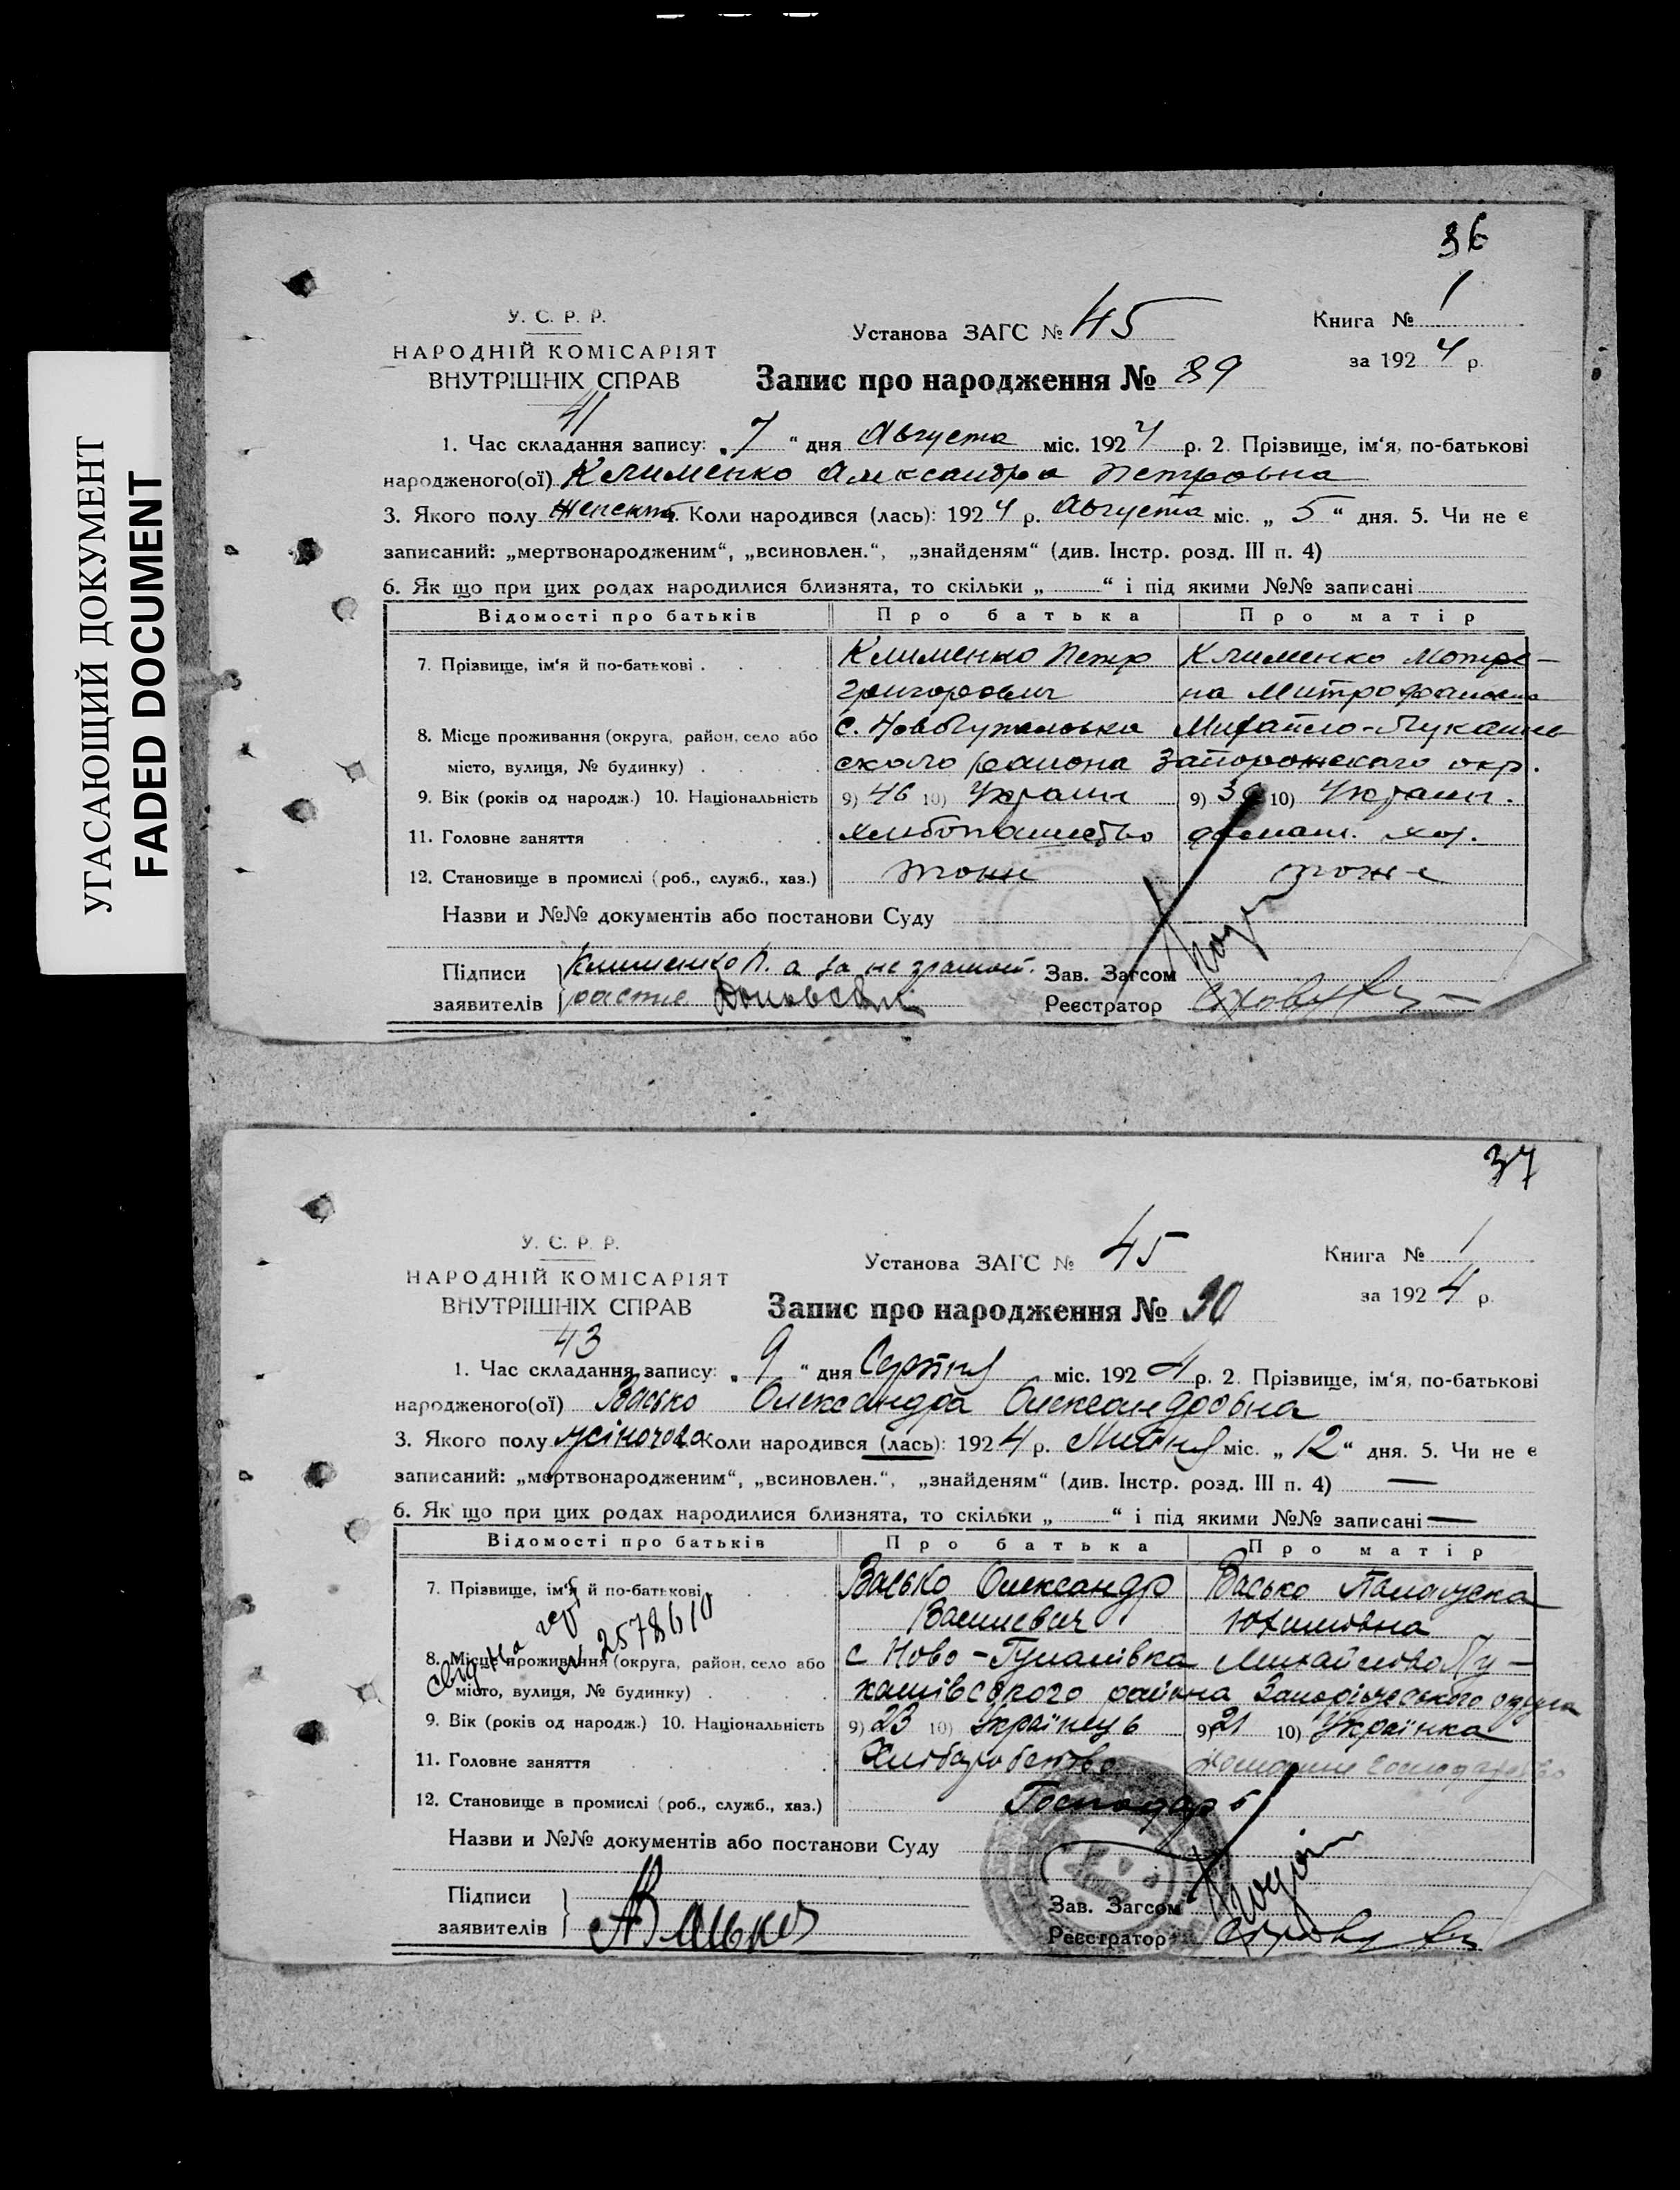 УГАСАЮЩИЙ ДОКУМЕНТ
FADED DOCUMENT
36
У. С. Р. Р.
НАРОДНІЙ КОМІСАРІЯТ
ВНУТРІШНІХ СПРАВ
41
Установа ЗАГС № 45
Книга № 1
за 1924 р.
Запис про народження № 89
1. Час складання запису: „7“ дня Августа міс. 1924 р. 2. Прізвище, ім‘я, по-батькові
народженого(ої) Клименко Александра Петровна
3. Якого полу женск. Коли народився (лась): 1924 р. Августа міс. „5“ дня. 5. Чи не є
записаний: „мертвонародженим“, „всиновлен.“, „знайденям“ (див. Інстр. розд. III п. 4)
6. Як що при цих родах народилися близнята, то скільки „ “ і під якими №№ записані
Відомості про батьків Про батька Про матір
7. Прізвище, ім‘я й по-батькові Клименко Петр Клименко Мотре-
Григорович на Митрофановна
8. Місце проживання (округа, район, село або с. Михайло-Лукашев
місто, вулиця, № будинку) ского района Запорожскаго окр.
9. Вік (років од народж.) 10. Національність 9) 46 10) Украин 9) 10) Украин.
11. Головне заняття хлибопашество домаш. хоз.
12. Становище в промислі (роб., служб., хаз.) тоже тоже
Назви и №№ документів або постанови Суду
Підписи Клименко П. а за не грамот. Зав. Загсом
заявителів Реєстратор
37
У. С. Р. Р.
НАРОДНІЙ КОМІСАРІЯТ
ВНУТРІШНІХ СПРАВ
43
Установа ЗАГС № 45
Книга № 1
за 1924 р.
Запис про народження № 90
1. Час складання запису: „9“ дня Серпня міс. 1924 р. 2. Прізвище, ім‘я, по-батькові
народженого(ої) Васько Олександра Олександровна
3. Якого полу жіночого Коли народився (лась): 1924 р. Липня міс. „12“ дня. 5. Чи не є
записаний: „мертвонародженим“, „всиновлен.“, „знайденям“ (див. Інстр. розд. III п. 4) —
6. Як що при цих родах народилися близнята, то скільки „ “ і під якими №№ записані —
Відомості про батьків Про батька Про матір
7. Прізвище, ім‘я й по-батькові Васько Олександр Васько Палажка
Васильевич Юхимовна
№ 2578610
8. Місце проживання (округа, район, село або с Ново-Гупалівка Михайлово Лу-
місто, вулиця, № будинку) кашівського района Запорізького округа
9. Вік (років од народж.) 10. Національність 9) 23 10) Українець 9) 21 10) Українка
11. Головне заняття Хлиборобство домашне господарство
12. Становище в промислі (роб., служб., хаз.) Господарь
Назви и №№ документів або постанови Суду
Підписи Зав. Загсом
заявителів А Васько Реєстратор